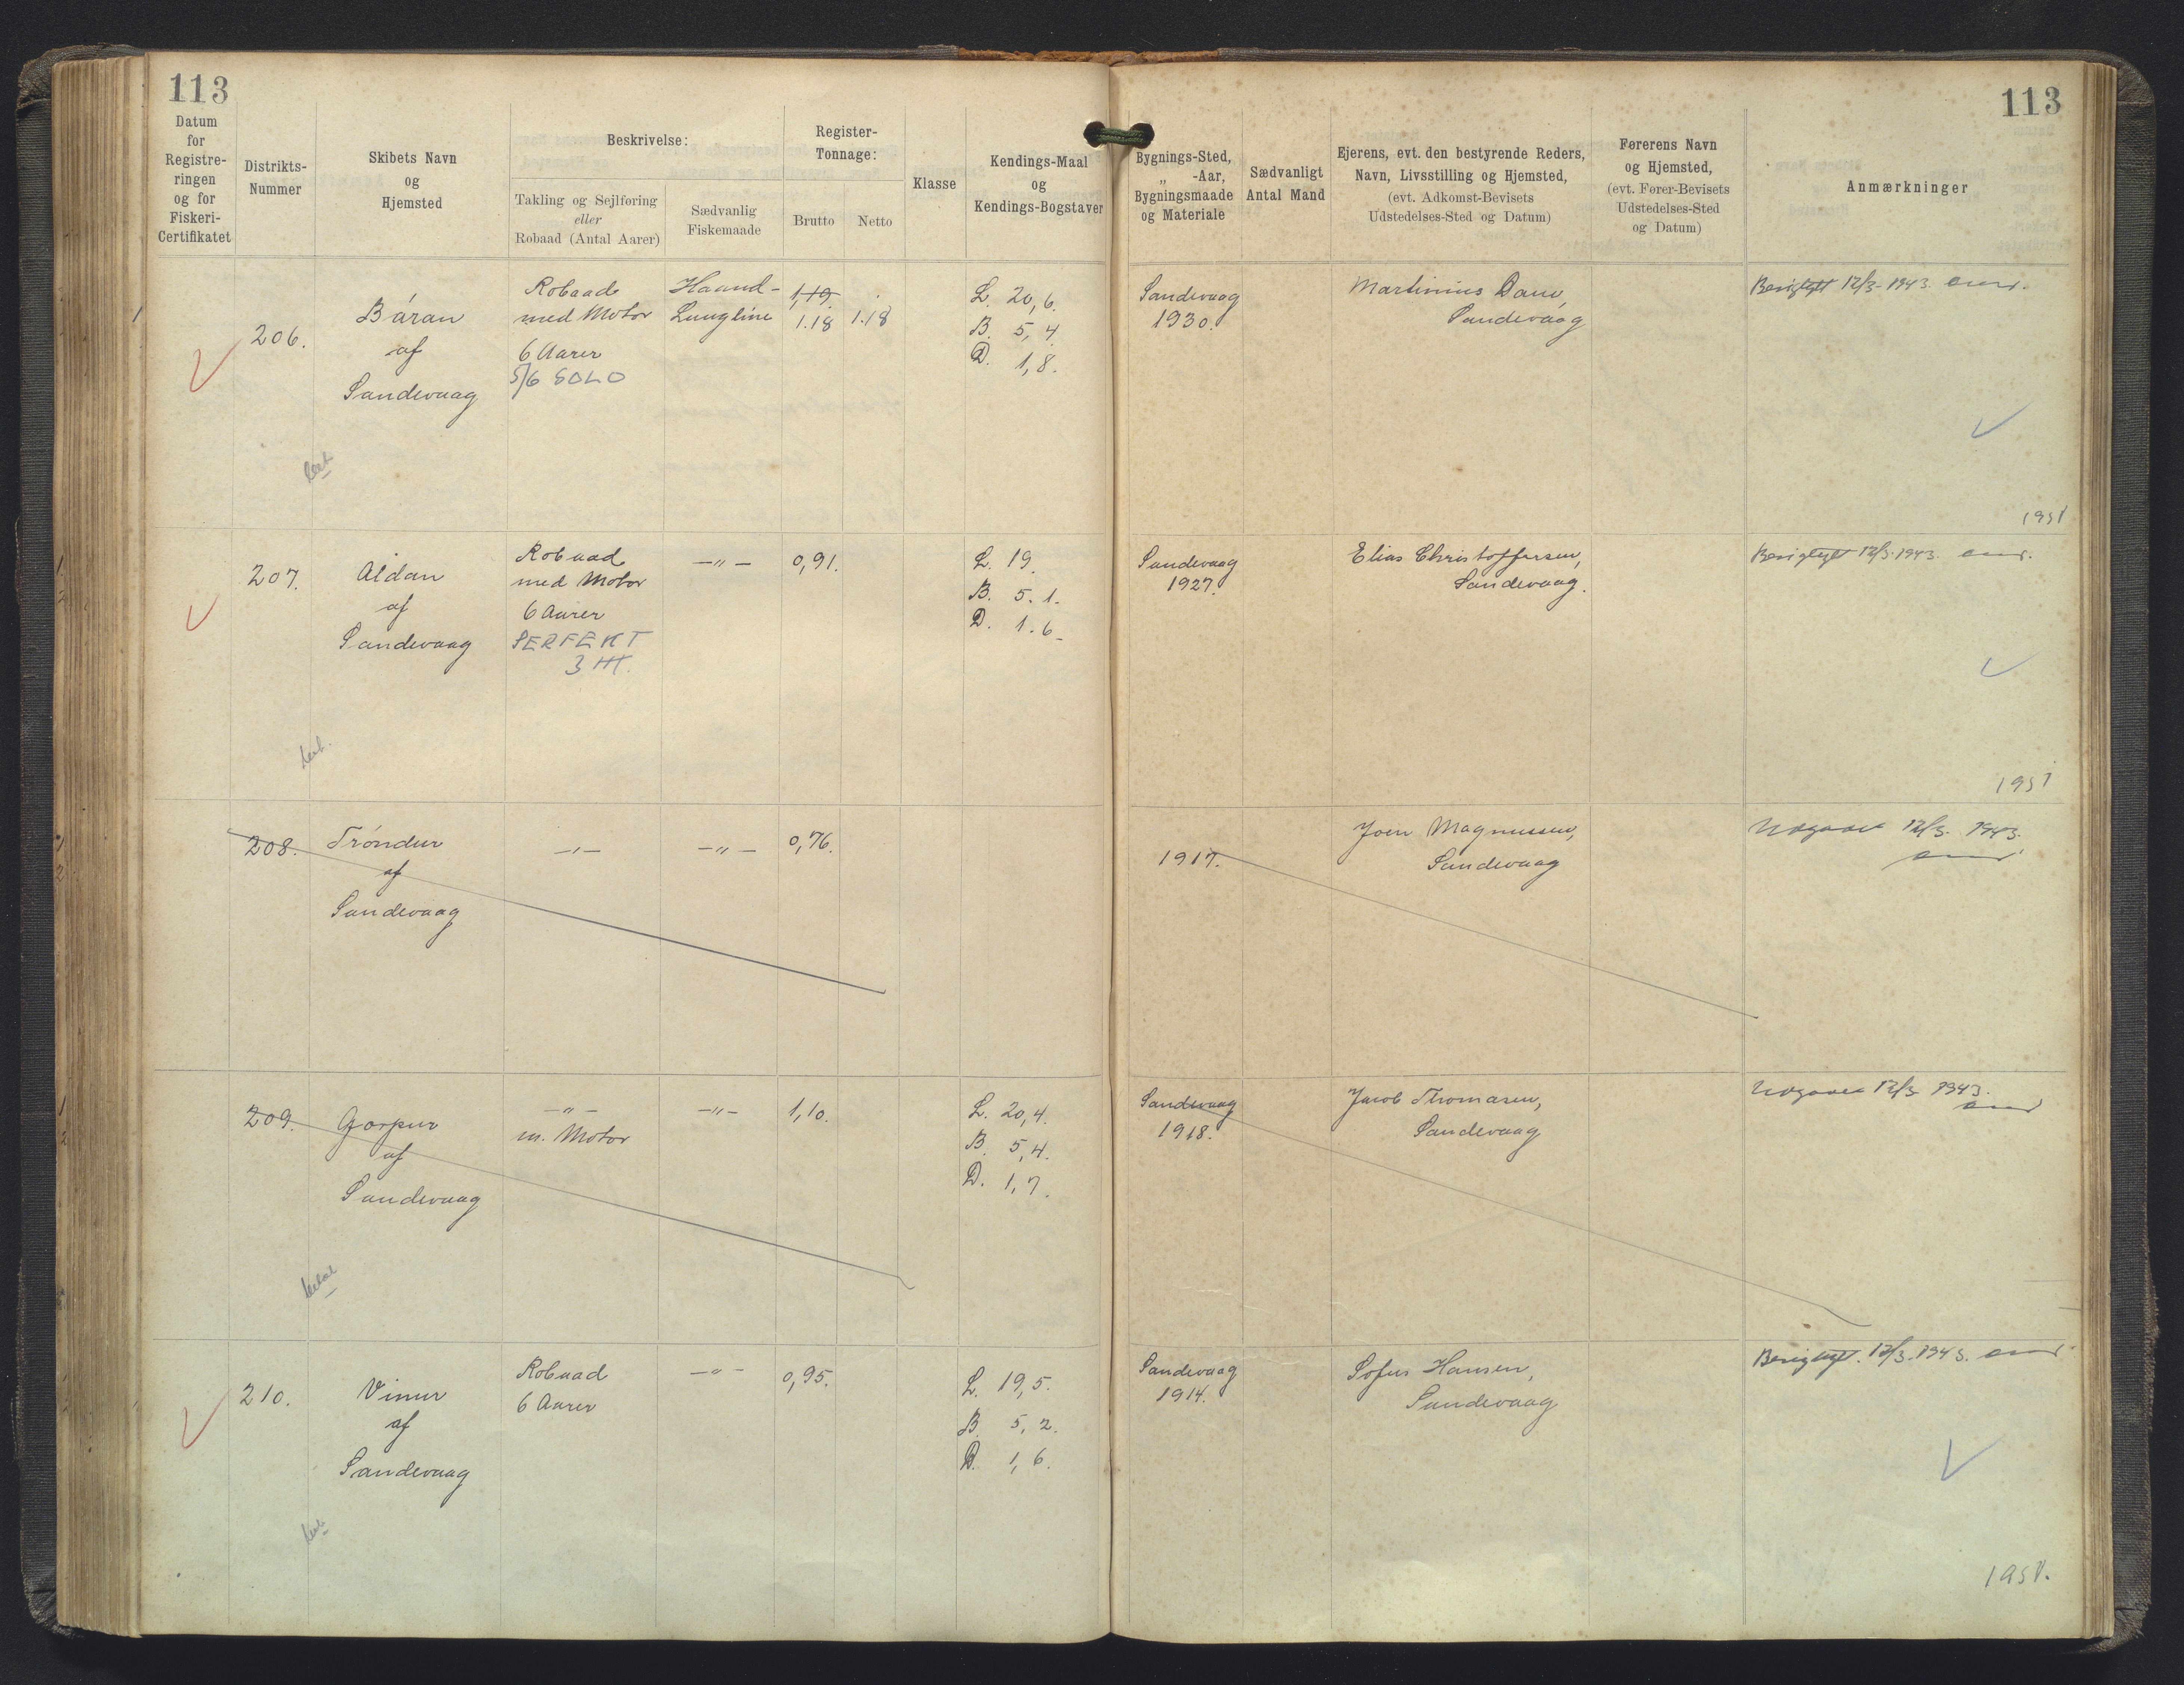 113
113
Datum
for
Registre-
ringen
og for
Fiskeri-
Certifikatet
Distrikts-
Nummer
Skibets Navn
og
Hjemsted
Beskrivelse:
Takling og Sejlføring
eller
Robaad (Antal Aarer)
Sædvanlig
Fiskemaade
Register-
Tonnage:
Brutto
Netto
Klasse
Kendings-Maal
og
Kendings-Bogstaver
Bygnings-Sted,
„ -Aar,
Bygningsmaade
og Materiale
Sædvanligt
Antal Mand
Ejerens, evt. den bestyrende Reders,
Navn, Livsstilling og Hjemsted,
(evt. Adkomst-Bevisets
Udstedelses-Sted og Datum)
Førerens Navn
og Hjemsted,
(evt. Fører-Bevisets
Udstedelses-Sted
og Datum)
Anmærkninger
206.
Báran
af
Sandevaag
Robaad
med Motor
6 Aarer
5/6 SOLO
Haand-
Langline
1,19
1.18
1.18
L. 20,6.
B. 5,4
D. 1,8.
Sandevaag
1930.
Martinius
Sandevaag
Besigtiget 12/3-1943.
1951
207.
Aldan
af
Sandevaag
Robaad
med Motor
6 Aarer
PERFEKT
3 HK.
-"-
0,91.
L. 19.
B. 5.1.
D. 1.6-
Sandevaag
1927.
Elias Christoffersen,
Sandevaag.
Besigtiget 12/3.1943.
1951
208.
Tróndur
af
Sandevaag
-"-
-"-
0,76.
1917.
Joen Magnussen,
Sandevaag
Udgaaet 12/3. 1943.
209.
Gorpur
af
Sandevaag
-"-
m. Motor
-"-
1,10.
L. 20,4.
B. 5,4.
D. 1,7.
Sandevaag
1918.
Jacob Thomasen,
Sandevaag
Udgaaet 12/3 1943.
210.
Vinur
af
Sandevaag
Robaad
6 Aarer
-"-
0,95.
L. 19,5.
B. 5,2.
D. 1,6.
Sandevaag
1914.
Sofus Hansen,
Sandevaag
Besigtiget. 12/3.1943.
1951.